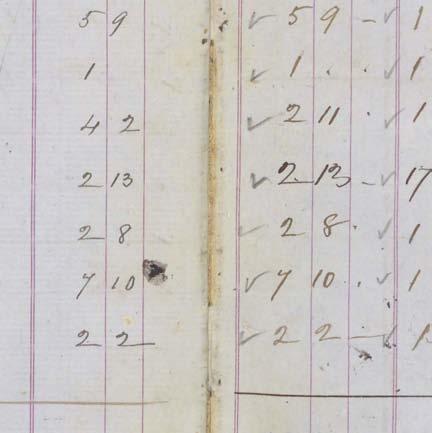 5 9 ✓ 5 9 - ✓ 1
1 ✓ 1 . . ✓ 1
4 2 ✓ 2 11 . ✓ 1
2 13 ✓ 2 13 - ✓ 17
2 8 ✓ 2 8 . ✓ 1
7 10 ✓ 7 10 . ✓ 1
2 2 ✓ 2 2 - ✓ 1